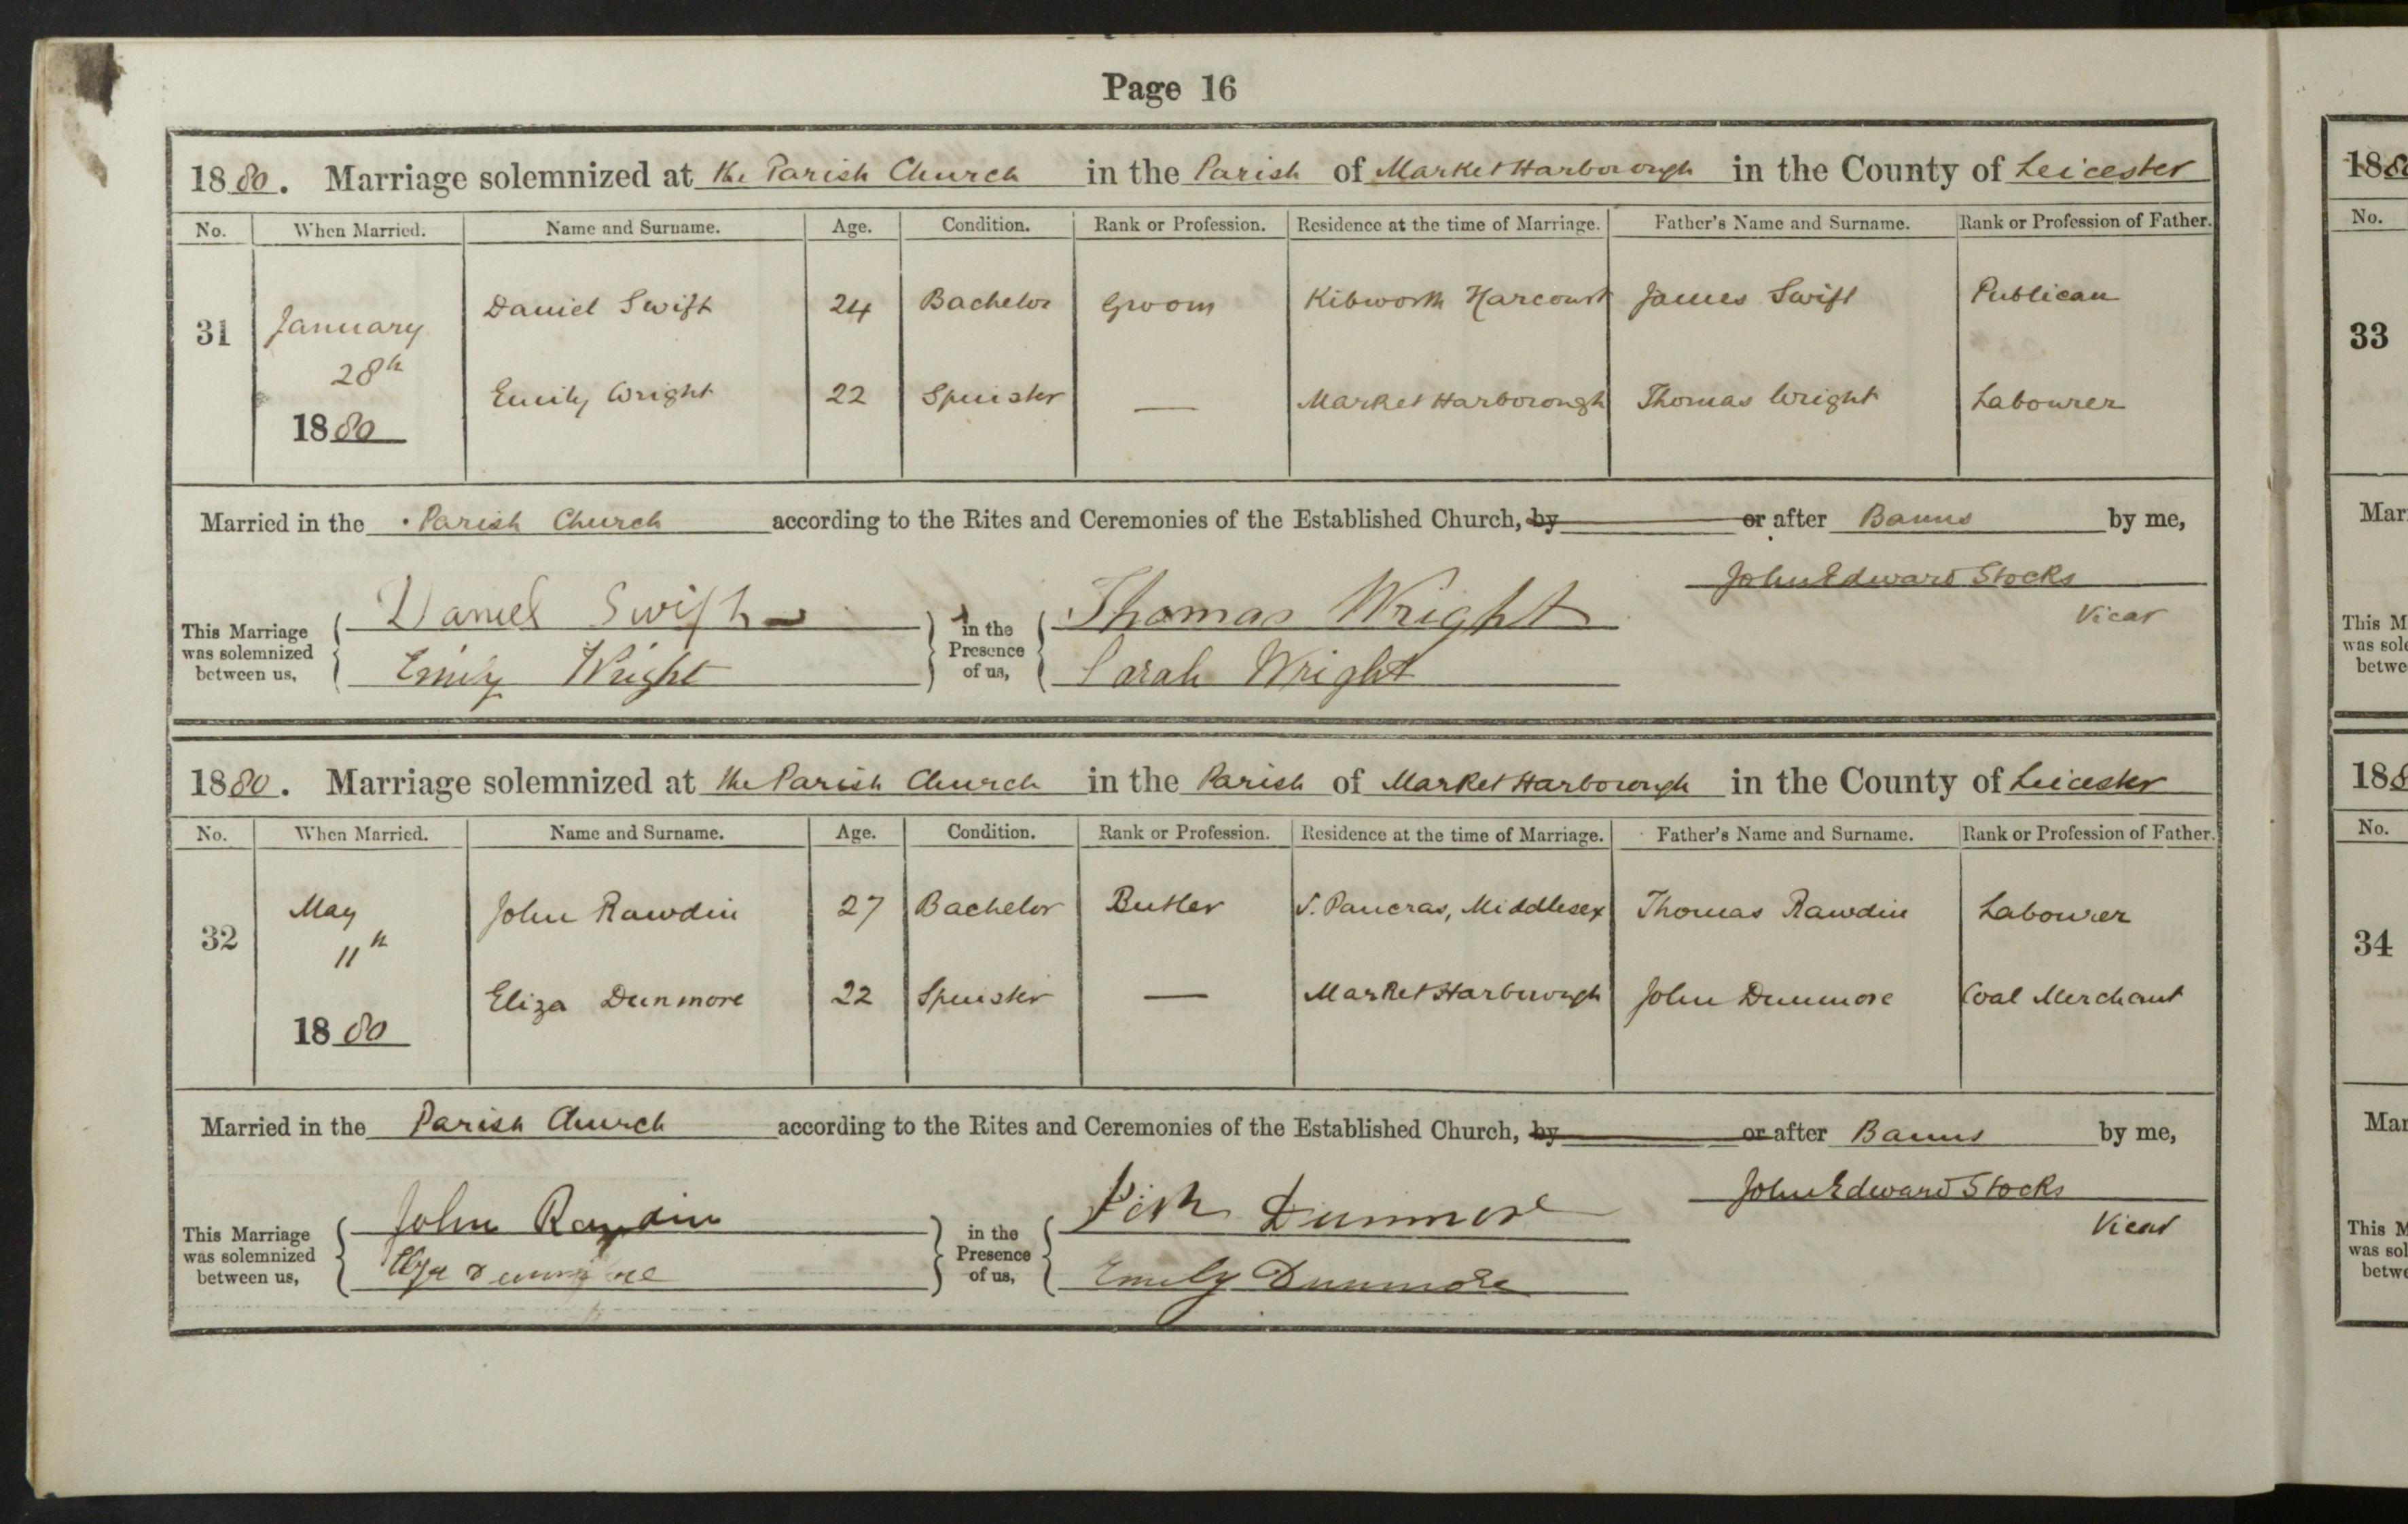 Page 16
1880. Marriage solemnized at the Parish Church in the Parish of Market Harborough in the County of Leicester
No. When Married. Name and Surname. Age. Condition. Rank or Profession. Residence at the time of Marriage. Father's Name and Surname. Rank or Profession of Father.
31 January 28th 1880 Daniel Swift 24 Bachelor Groom Kibworth Harcourt James Swift Publican
Emily Wright 22 Spinster — Market Harborough Thomas Wright Labourer
Married in the Parish Church according to the Rites and Ceremonies of the Established Church, by or after Banns by me,
John Edward Stocks
Vicar
This Marriage was solemnized between us, Daniel Swift in the Presence of us, Thomas Wright
Emily Wright Sarah Wright
1880. Marriage solemnized at the Parish Church in the Parish of Market Harborough in the County of Leicester
No. When Married. Name and Surname. Age. Condition. Rank or Profession. Residence at the time of Marriage. Father's Name and Surname. Rank or Profession of Father.
32 May 11th 1880 John Rawdin 27 Bachelor Butler S. Pancras, Middlesex Thomas Rawdin Labourer
Eliza Dunmore 22 Spinster — Market Harborough John Dunmore Coal Merchant
Married in the Parish Church according to the Rites and Ceremonies of the Established Church, by or after Banns by me,
John Edward Stocks
Vicar
This Marriage was solemnized between us, John Rawdin in the Presence of us, Dunmore
Emily Dunmore
188
No.
33
Mar
This M
was sole
betwe
188
No.
34
Mar
This M
was sol
betwe